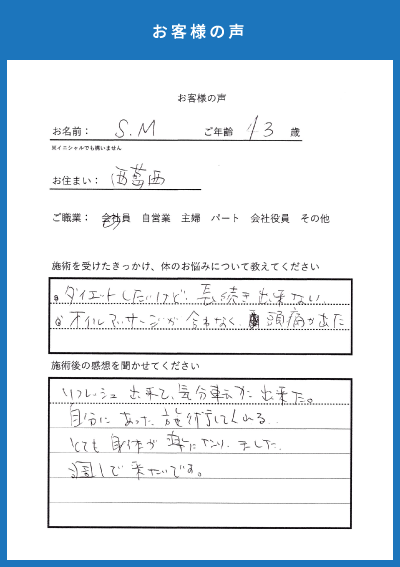 お客様の声
お客様の声
お名前： S.M ご年齢 43 歳
※イニシャルでも構いません
お住まい： 西葛西
ご職業： 会社員 自営業 主婦 パート 会社役員 その他
施術を受けたきっかけ、体のお悩みについて教えてください
ダイエットしたいけど、長続き出来ない。
オイルマッサージが合わなく 頭痛が出た
施術後の感想を聞かせてください
リフレッシュ出来て、気分転換が出来た。
自分にあった施術してくれる。
とても身体が楽になりました。
週1で来たいです。